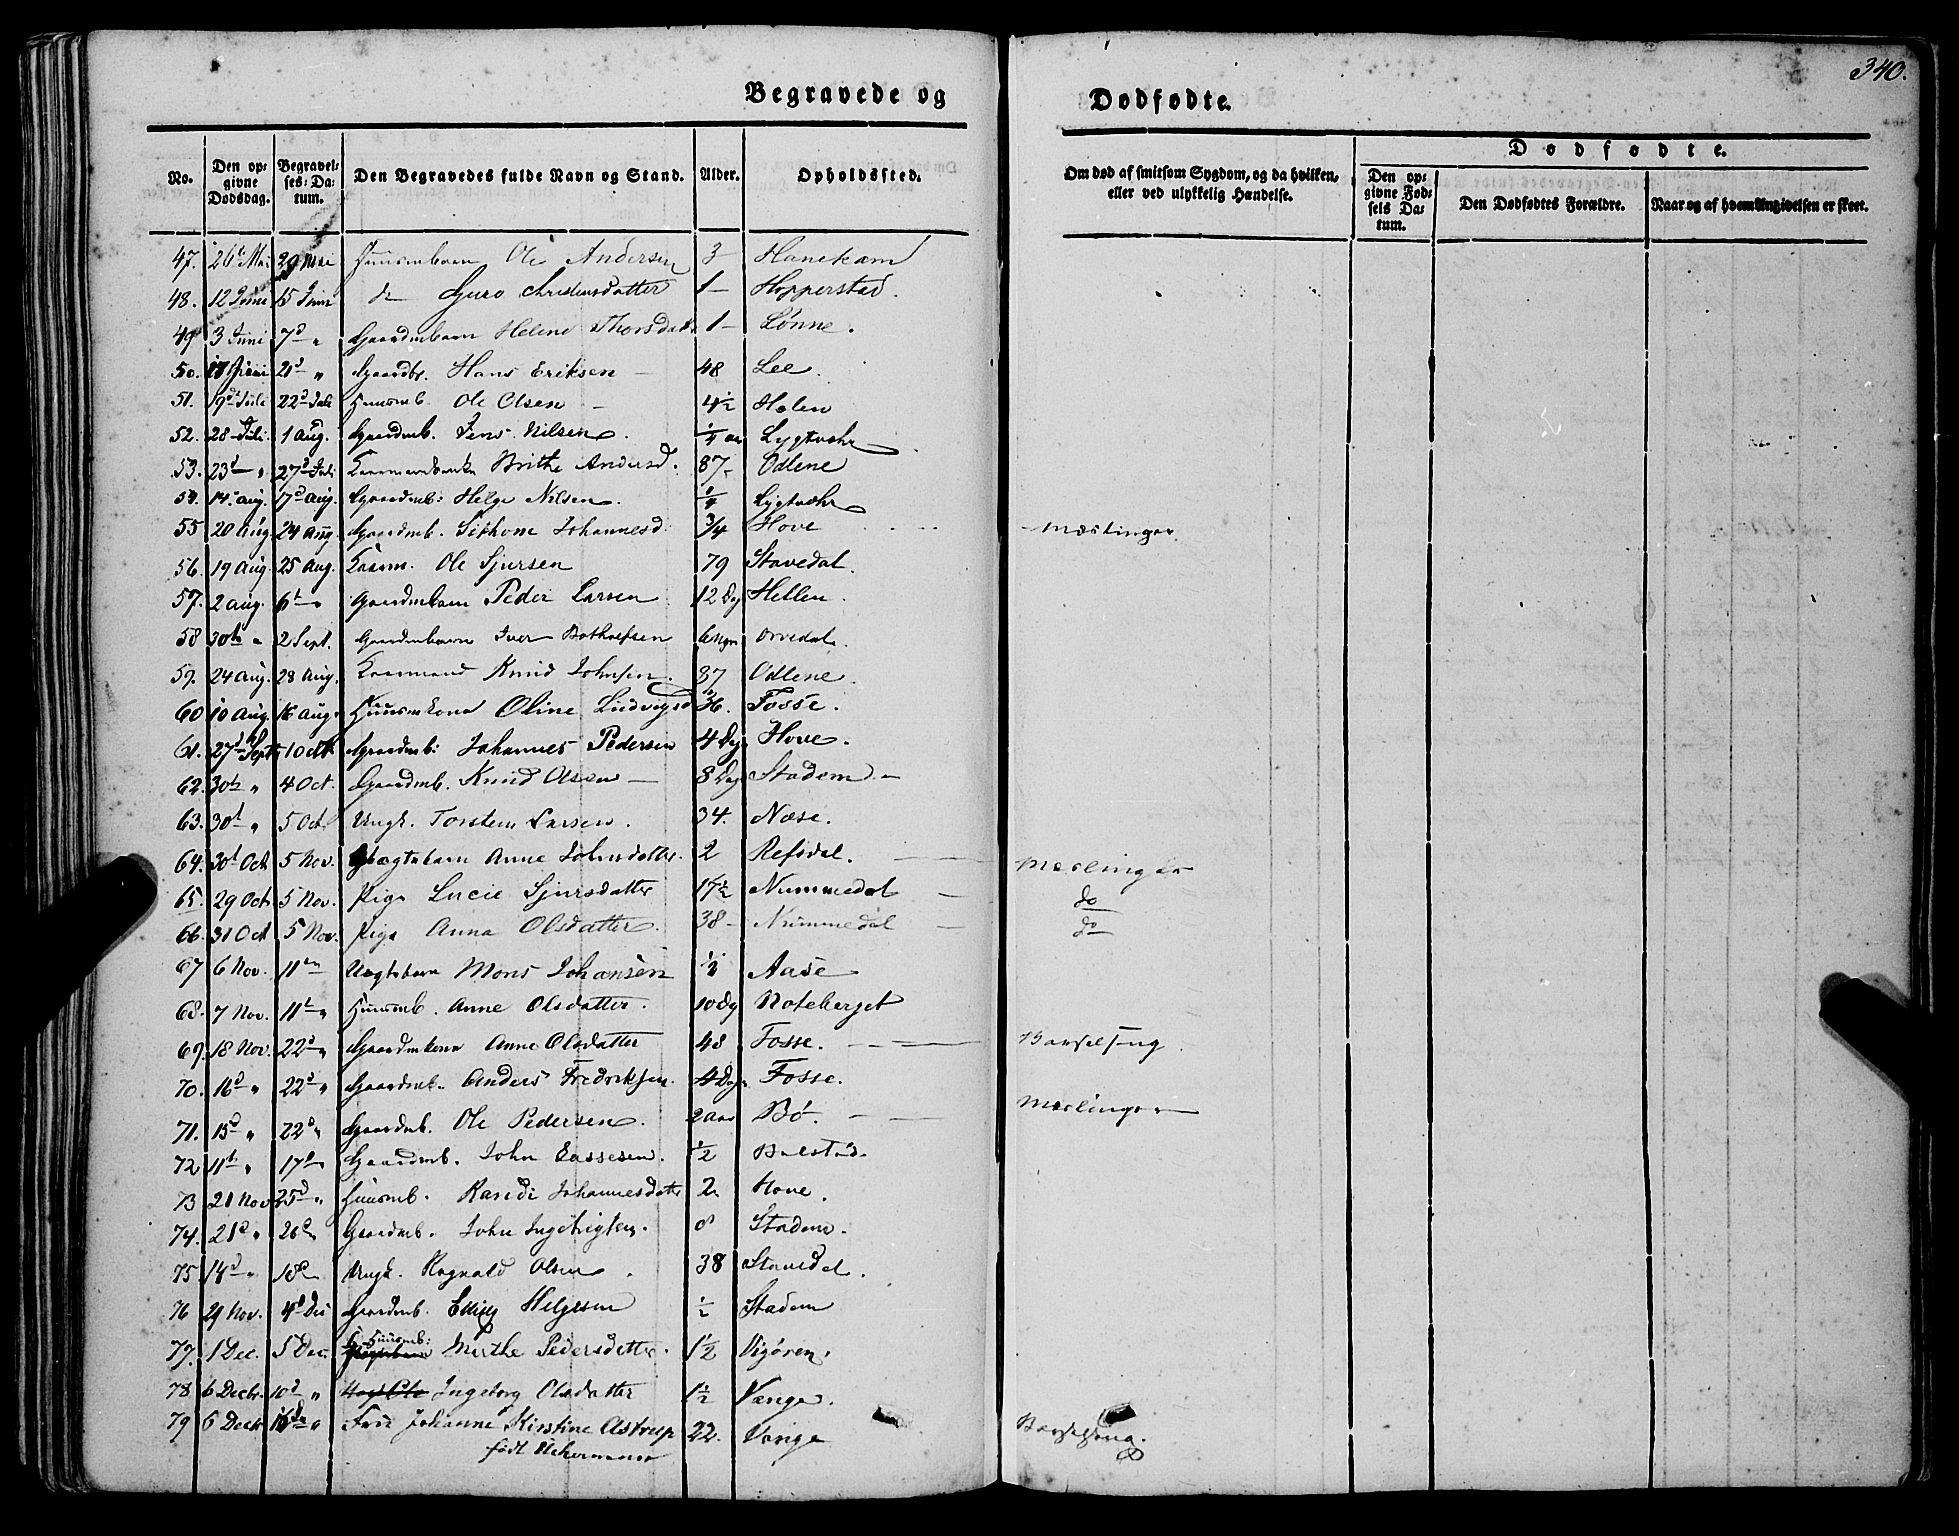 340.
Begravede og Dødfødte.
No. Den opgivne Dødsdag. Begravelses-Datum. Den Begravedes fulde Navn og Stand. Alder. Opholdssted. Om død af smitsom Sygdom, og da hvilken, eller ved ulykkelig Hændelse. Dødfødte. Den opgivne Fødsels Datum. Den Dødfødtes Forældre. Naar og af hvem Angivelsen er skeet.
47. 26 Mai 29 Mai Ole Andersen 3 Hanekam
48. 12 Juni 15 Juni do Guro Christensdatter 1 Hopperstad.
49 3 Juni 7d " Gaardmbarn Helene Thorsdatr 1 Lønne.
50. 17 Juni 21d " Gaardbr. Hans Eriksen 48 Lee.
51. 19d Juli 22d Juli Huusmb. Ole Olsen 4½ Holen
52. 28 Juli. 1 Aug. Gaardmb. Jens Nilsen. ¼ aar Lygtvohr
53. 23d " 27d Juli Brithe Andersd. 87 Odlene
54. 14 Aug. 17d Aug. Gaardmb: Helge Nilsen. ¼ Lygtvohr
55 20 Aug. 24 Aug. Gaardmb. Johannesd. ¾ Hove Mæslinger.
56. 19 Aug. 25 Aug. Kaarm. Ole Sjursen 79 Stavedal.
57. 2 Aug. 6t " Gaardmbarn Peder Larsen 12 Dag Hellen.
58 30te " 2 Sept. Gaardmbarn Iver Bothvefsen 6 Ugr Orvedal.
59. 24 Aug. 28 Aug. Kaarmand Knud Johnsen. 87 Odlene.
60 10 Aug. 16 Aug. Huusmkone Oline Ludvigsd 36. Fosse.
61. 27d Sept 1 Oct Gaardmb: Johannes Pedersen 4 Dag Hove.
62. 30te " 4 Oct. Gaardmb. Knud Olsen 8 Dag Stadem
63. 30t " 5 Oct Ungk. Torsten Larsen. 34. Næse.
64. 30t Oct 5 Nov. Lægtsbarn Anne Johnsdatter. 2 Refsdal. Mæslinger
65. 29 Oct 5 Nov. Pige Lucie Sjursdatter 17½ Nummedal do
66. 31 Oct 5 Nov. Pige Anna Olsdatter. 38 Nummedal do
67 6 Nov. 11te " Uægtebarn Mons Johansen ½ Aase
68. 7 Nov. 11t " Huusmb. Anne Olsdatter. 10 Dg Noteberget
69. 18 Nov. 22d " Gaardmkone Anne Olsdatter 48 Fosse. Barselseng.
70. 16d " 22d " Gaardmb. Anders Fredriksen. 4 Dg. Fosse.
71. 15d " 22d " Gaardmb. Ole Pedersen. 2 aar Bø. Mæslinger
72 11te " 17d " Gaardmb. John Lassesen. ½
73 21 Nov 25d " Huusmb. Randi Johannesdatr 2 Hove.
74. 21d " 26d " Gaardmb. John Ingebrigtsen. Stadem.
75. 14d " 18d " Ungk. Ragnald Olsen. 38 Stavedal.
76 29 Nov. 4d Dec Gaardmb. Helgesen ½ Stadem
77. 1 Dec. 5 Dec. Huusmb: Marthe Pedersdatter. 1½ Vigøren.
78 6 Decbr. 10d " Ingeborg Olsdatter 1½ Vænge.
79 6 Decbr 16de " Frue Johanne Kirstine Astrup 22. Vange Barselseng.
født Uckermann